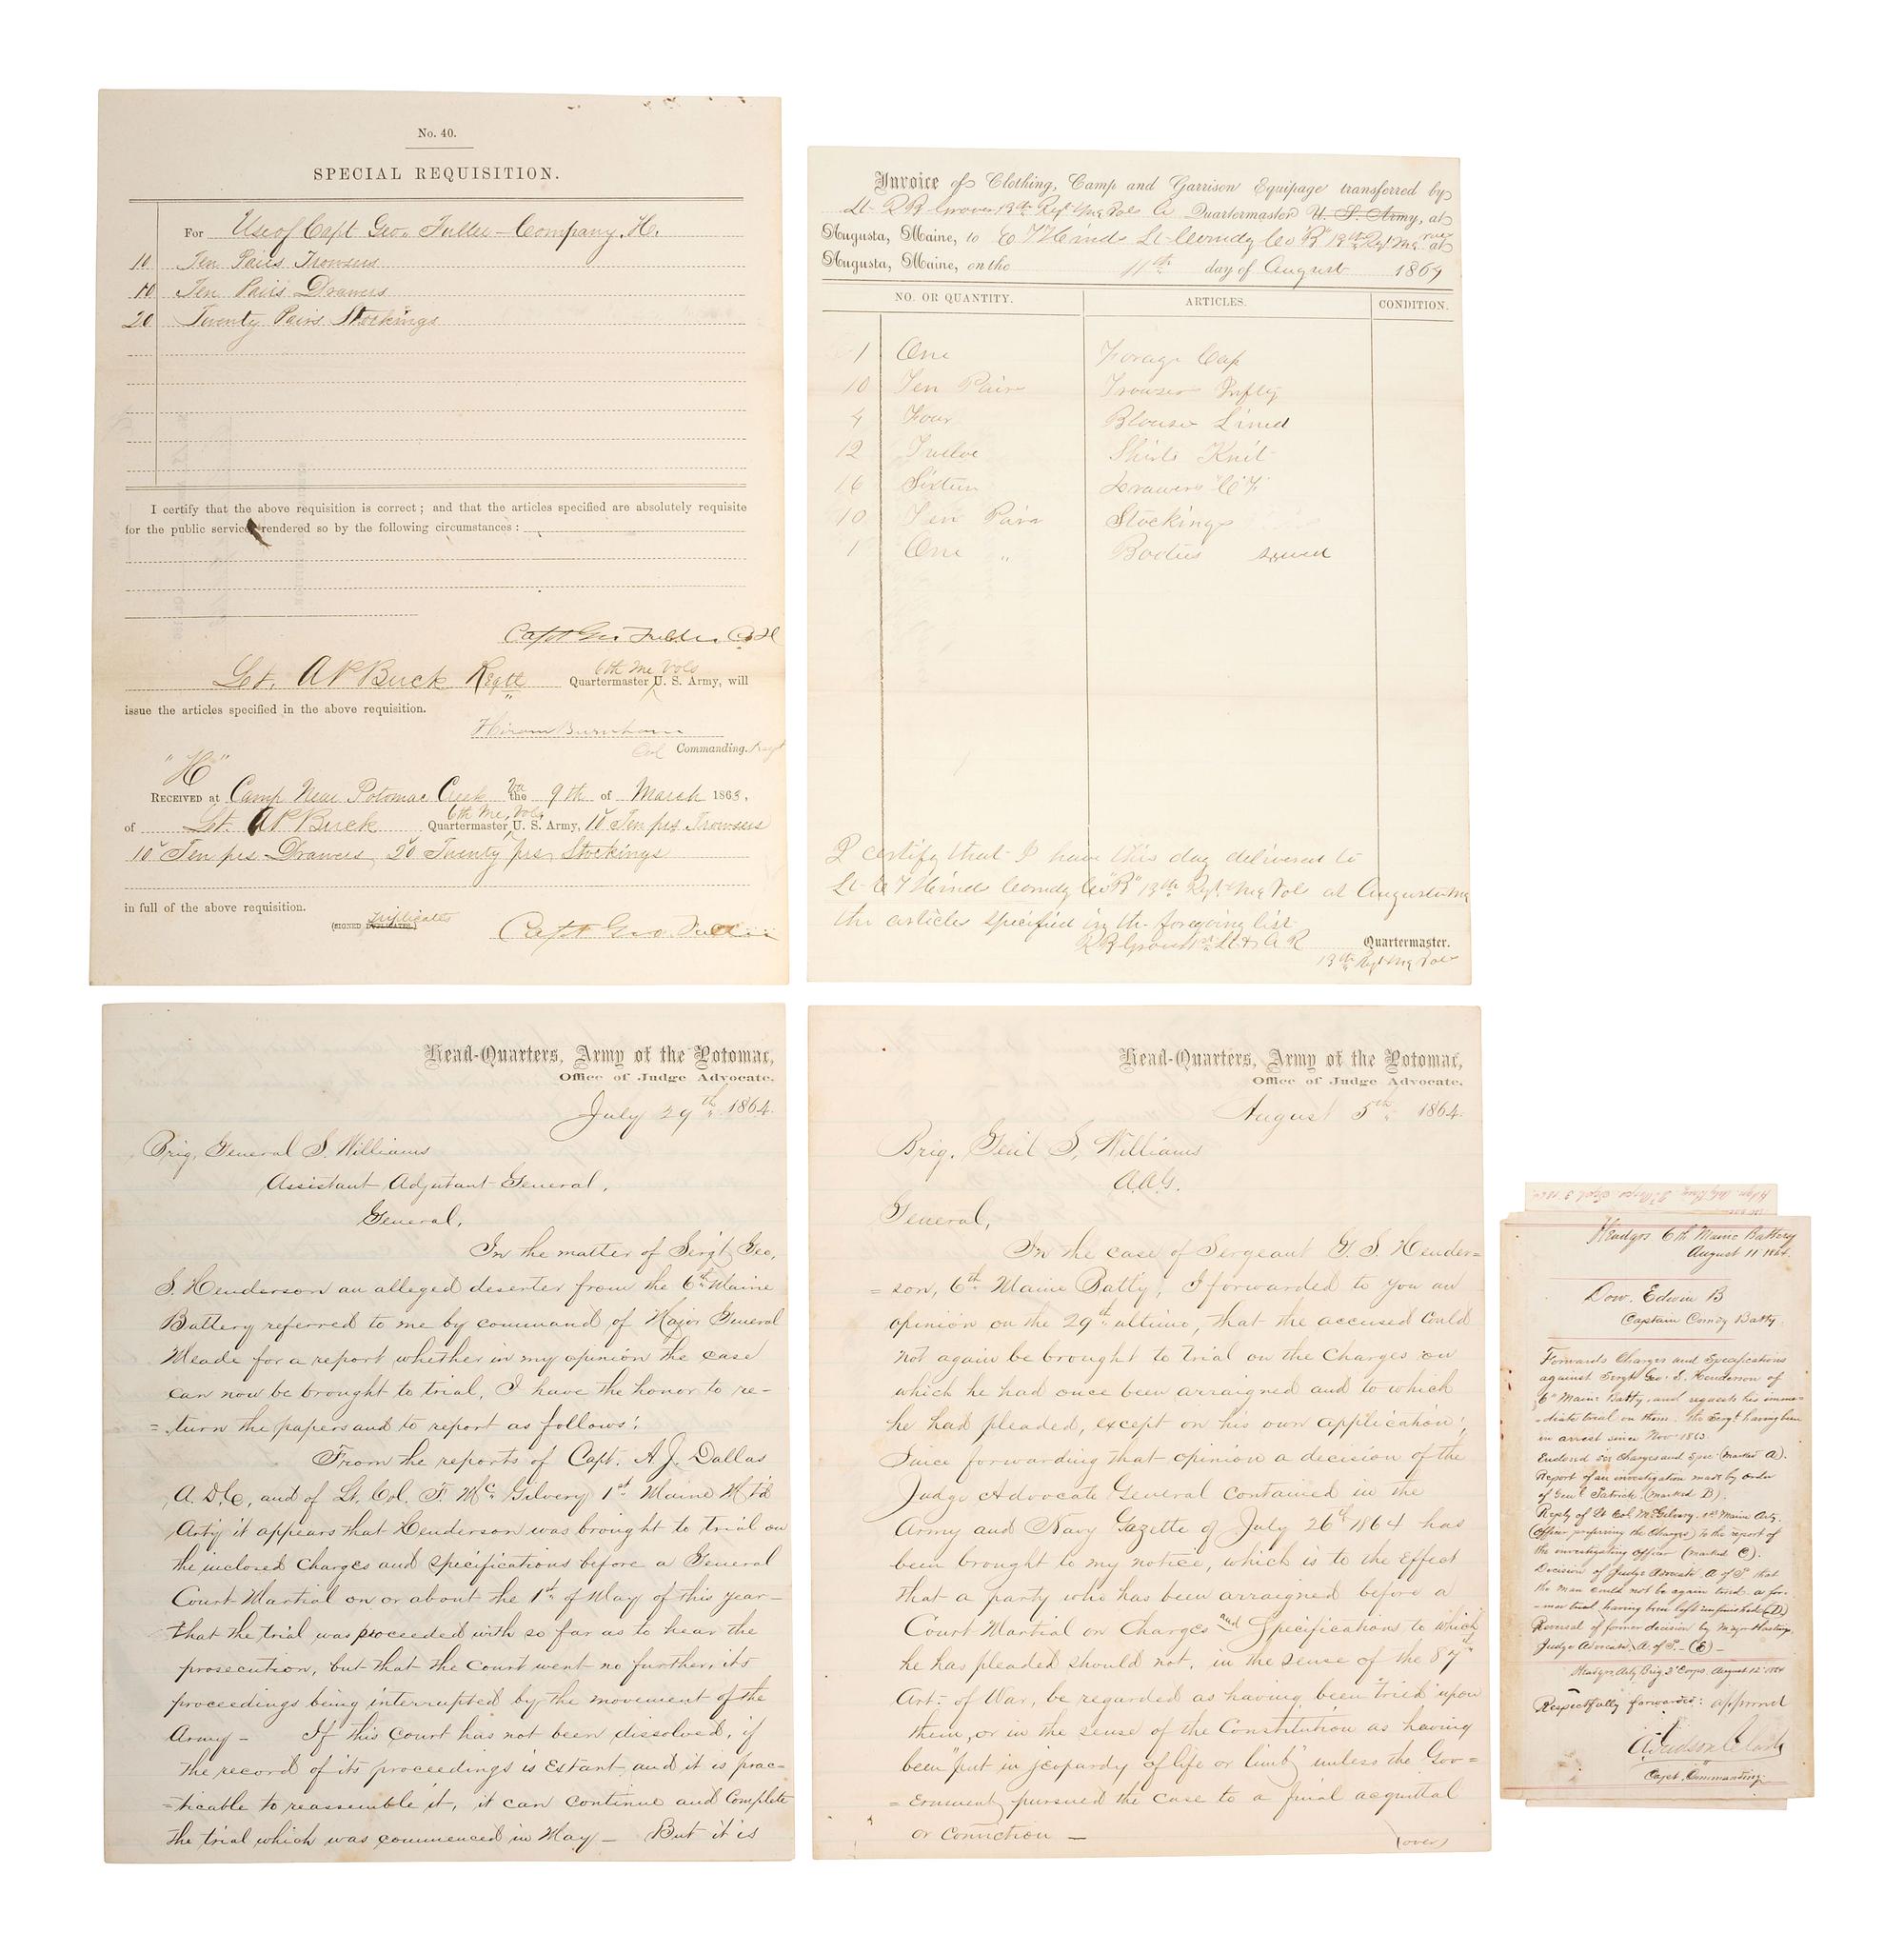 No. 40.
SPECIAL REQUISITION.
For Use of Capt Geo. Fuller - Company. H.
10 Ten Pairs Trowsers
10 Ten Pairs Drawers
20 Twenty Pairs Stockings
I certify that the above requisition is correct; and that the articles specified are absolutely requisite
for the public service rendered so by the following circumstances:
Capt Geo Fuller Co H
6th Me Vols
Lt. A P Buck Regtl Quartermaster U. S. Army, will
issue the articles specified in the above requisition.
Hiram Burnham
Col Commanding. Regt
"H"
RECEIVED at Camp Near Potomac Creek Va the 9th of March 1863,
6th Me, Vols
of Lt. A P Buck Quartermaster U. S. Army, 10 Ten prs Trowsers
10 Ten prs Drawers, 20 Twenty prs Stockings
in full of the above requisition.
Triplicates
(SIGNED DUPLICATES.)
Capt Geo. Fuller
Invoice of Clothing, Camp and Garrison Equipage transferred by
Lt R R Grover 13th Regt Me Vols A Quartermaster U. S. Army, at
Augusta, Maine, to Lt Comdg Co "B" 13th Regt Me Vols at
Augusta, Maine, on the 11th day of August 1864
NO. OR QUANTITY. ARTICLES. CONDITION.
1 One Forage Cap
10 Ten Pair Trowsers Infty
4 Four Blouse Lined
12 Twelve Shirts Knit
16 Sixteen Drawers C. F.
10 Ten Pairs Stockings
1 One " Bootees sewed
I certify that I have this day delivered to
Lt Comdg Co "B" 13th Regt Me Vols at Augusta Me
the articles specified in the foregoing list
Quartermaster.
13th Regt Me Vols
Head-Quarters, Army of the Potomac,
Office of Judge Advocate.
July 29th 1864.
Brig, General S. Williams
Assistant Adjutant General,
General,
In the matter of Sergt Geo,
S. Henderson an alleged deserter from the 6th Maine
Battery referred to me by command of Major General
Meade for a report whether in my opinion the case
can now be brought to trial, I have the honor to re-
=turn the papers and to report as follows:
From the reports of Capt. A. J. Dallas
A. D. C, and of Lt. Col. F. McGilvery 1st Maine M't'd
Arty it appears that Henderson was brought to trial on
the inclosed Charges and Specifications before a General
Court Martial on or about the 1st of May of this year-
that the trial was proceeded with so far as to hear the
prosecution, but that the Court went no further, its
proceedings being interrupted by the movement of the
Army - If this Court has not been dissolved, if
the record of its proceedings is Extant and it is prac=
=ticable to reassemble it, it can Continue and Complete
the trial which was commenced in May - But it is
Head-Quarters, Army of the Potomac,
Office of Judge Advocate.
August 5th 1864.
Brig. Genl S. Williams
A.A.G.
General,
In the case of Sergeant G. S. Hender=
=son, 6th Maine Batty, I forwarded to you an
opinion on the 29th ultimo, that the accused could
not again be brought to trial on the Charges on
which he had once been arraigned and to which
he had pleaded, except on his own application;
Since forwarding that opinion a decision of the
Judge Advocate General contained in the
Army and Navy Gazette of July 26th 1864 has
been brought to my notice, which is to the effect
that a party who has been arraigned before a
Court Martial on Charges and Specifications to which
he has pleaded should not, in the sense of the 87th
Art: of War, be regarded as having been "tried" upon
them, or in the sense of the Constitution as having
been "put in jeopardy of life or limb" unless the Gov=
=ernment pursued the case to a final acquittal
or conviction —
(over)
Headqrs. 6th Maine Battery
August 11 1864.
Dow. Edwin B
Captain Comdg Batty.
Forwards Charges and Specifications
against Sergt Geo. S. Henderson of
6th Maine Batty, and requests his imme=
=diate trial on them. The Sergt. having been
in arrest since Nov 1863.
Enclosed see Charges and Spec (marked A).
Report of an investigation made by order
of Genl Patrick. (marked B).
Reply of Lt Col McGilvery. 1st Maine Arty.
(Officer preferring the charges) to the report of
the investigating Officer (marked C).
Decision of Judge Advocate A of P that
the man could not be again tried a for=
=mer trial having been left unfinished (D)
Reversal of former decision by Major Hastings
Judge Advocate A. of P. - (E) -
Headqrs Arty Brig 2d Corps, August 12th 1864
Respectfully forwarded: approved
A Judson Clark
Capt. Commanding.